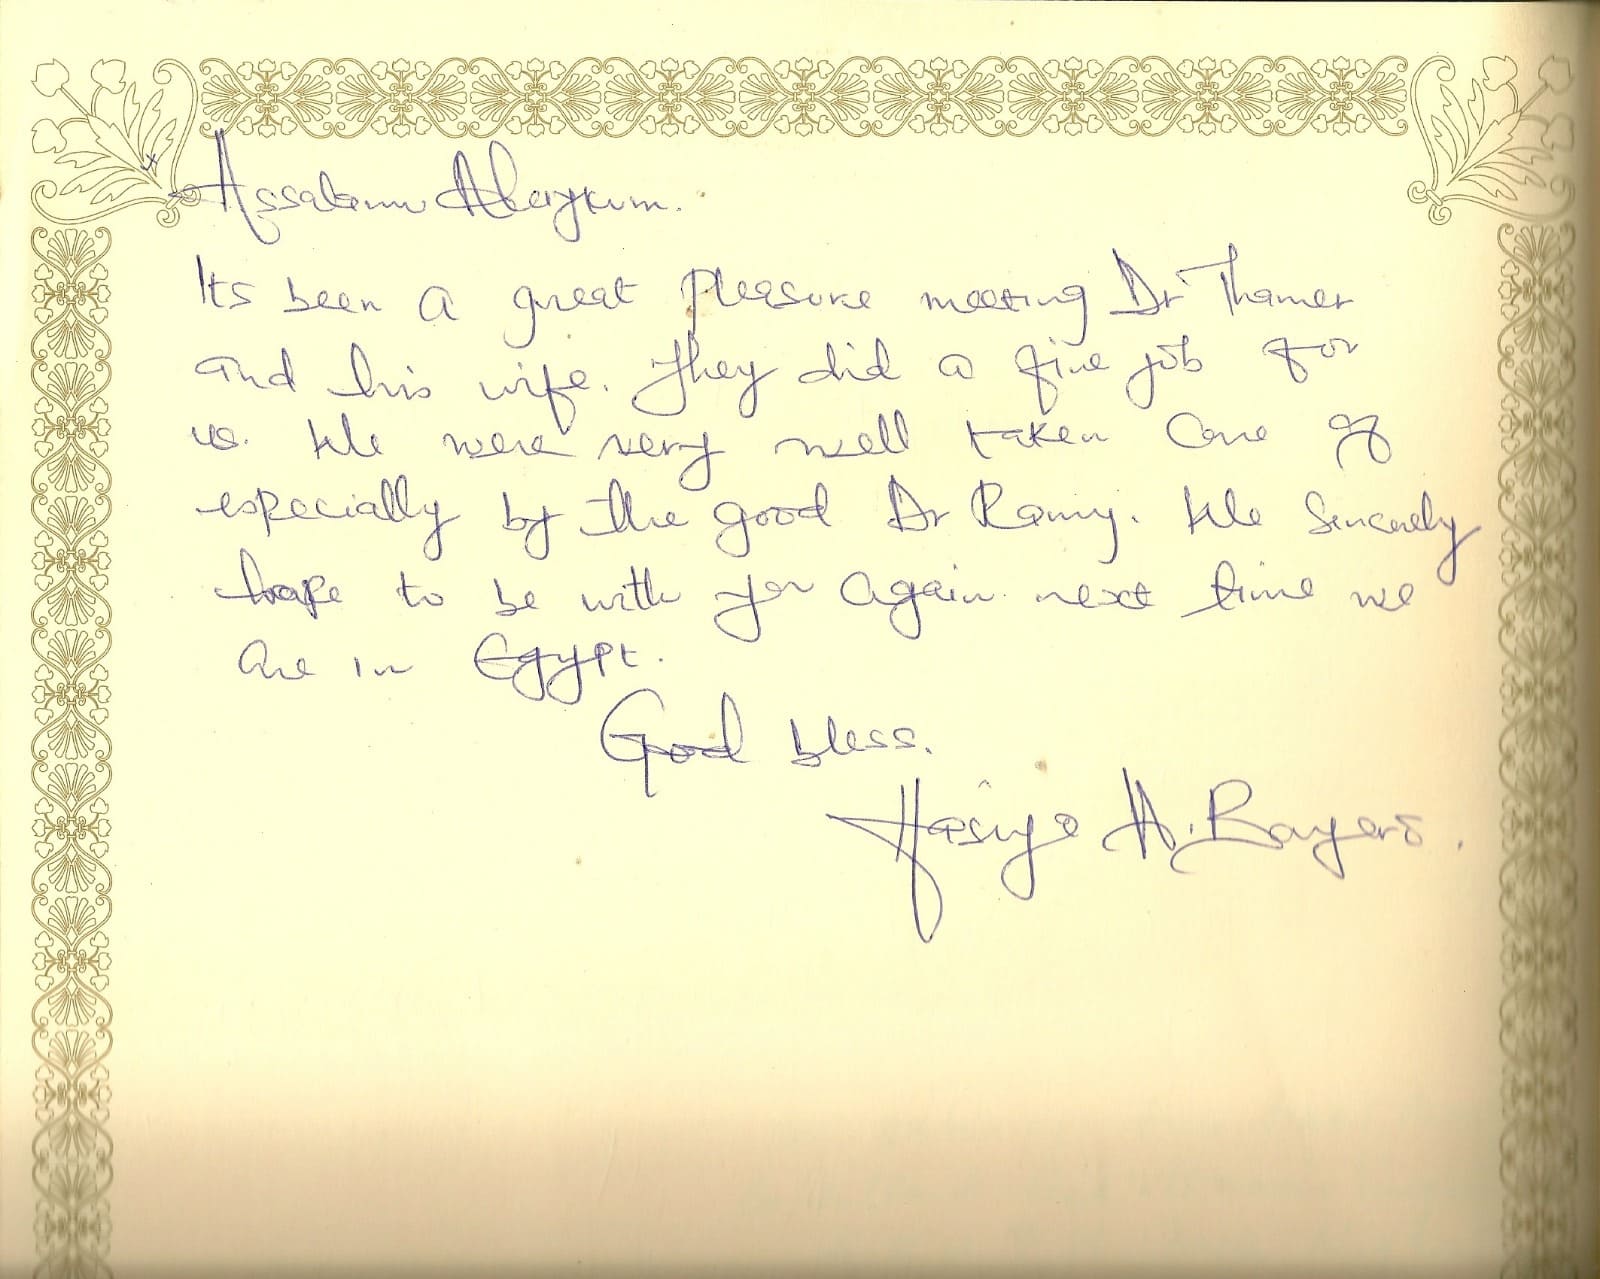 Assalamu Alaykum.
Its been a great pleasure meeting Dr Thamer
and his wife. They did a fine job for
us. We were very well taken care of
especially by the good Dr Ramy. We sincerely
hope to be with you again next time we
are in Egypt.
Good bless.
Hasiya A. Bayero.